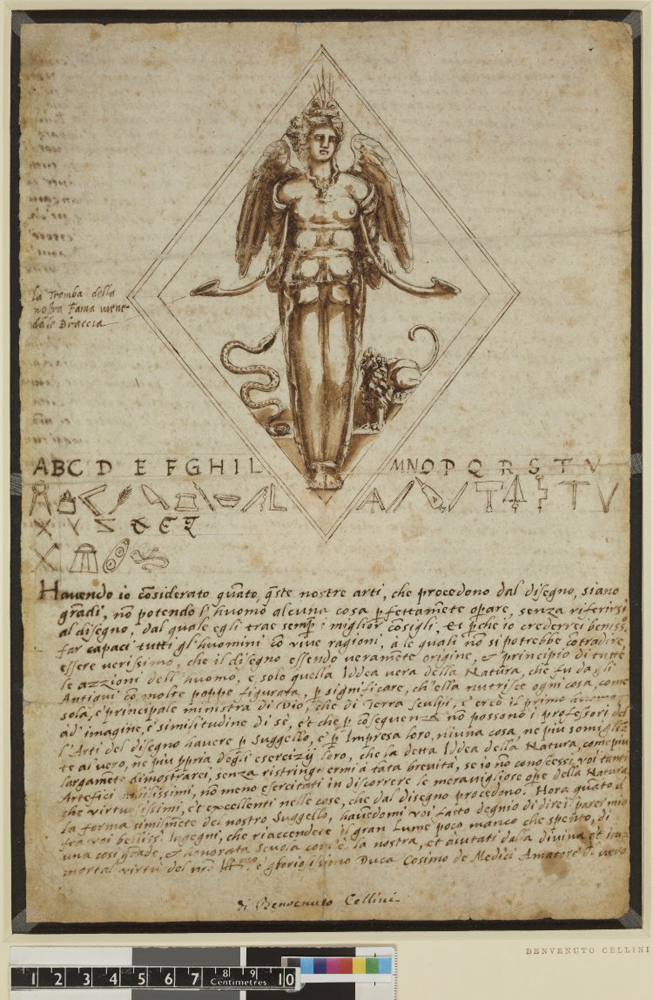 la Tromba della
nostra Fama viene
dale Braccia
ABC D E FGHIL MNOP Q R S T V
X Y Z & È
Hauendo io cōsiderato quāto q̄ste nostre arti, che procedono dal disegno, siano
grādi, nō potendo l'huomo alcuna cosa p̄fettamēte opare, senza riferirsi
al disegno, dal quale egli trae semp̄ i miglior cōsigli, Et p̄che io crederrei beniss.
far capaci tutti gl'huomini cō uiue ragioni, à le quali nō si potrebbe cōtradire,
essere uerissimo, che il disegno essendo ueramēte origine, e principio di tutte
le azzioni dell'huomo, e solo quella Iddea uera della Natura, che fu da gli
Antiqui cō molte poppe figurata, p̄ significare, ch'ella nutrisce ogni cosa, come
sola, e principale ministra di Dio, che di Terra sculpì, e creò il primo huomo
ad imagine, e similitudine di sè, et che p̄ cōseguenza nō possono i profesori del
l'Arti del disegno hauere p̄ Suggello, e p̄ Impresa loro, niuna cosa, ne piu somiglia
te al uero, ne piu pp̄ria degli esercizij loro, che la detta Iddea della Natura, come piu
largamēte dimostrarei, senza ristringermi à tāta breuità, se io nō conoscessi uoi tanti
Artefici nobilissimi, nō meno esercitati in discorrere le merauigliose ope della Natura
che uirtuosissimi, et excellenti nelle cose, che dal disegno procedono. Hora quāto à
la forma similmēte del nostro Suggello, hauēdomi uoi fatto degnio di dirci parer mio
fra uoi bellissi. Ingegni, che riaccendere il gran lume poco manco che spēto, di
una cosi grāde, et honorata Scuola com'è la nostra, et aiutati dalla diuina et im
mortal uirtù del nrō Ill.mo, e gloriosissimo Duca Cosimo de Medici Amatore di uero
di Benvenuto Cellini
BENVENUTO CELLINI
1 2 3 4 5 6 7 8 9 10
Centimetres